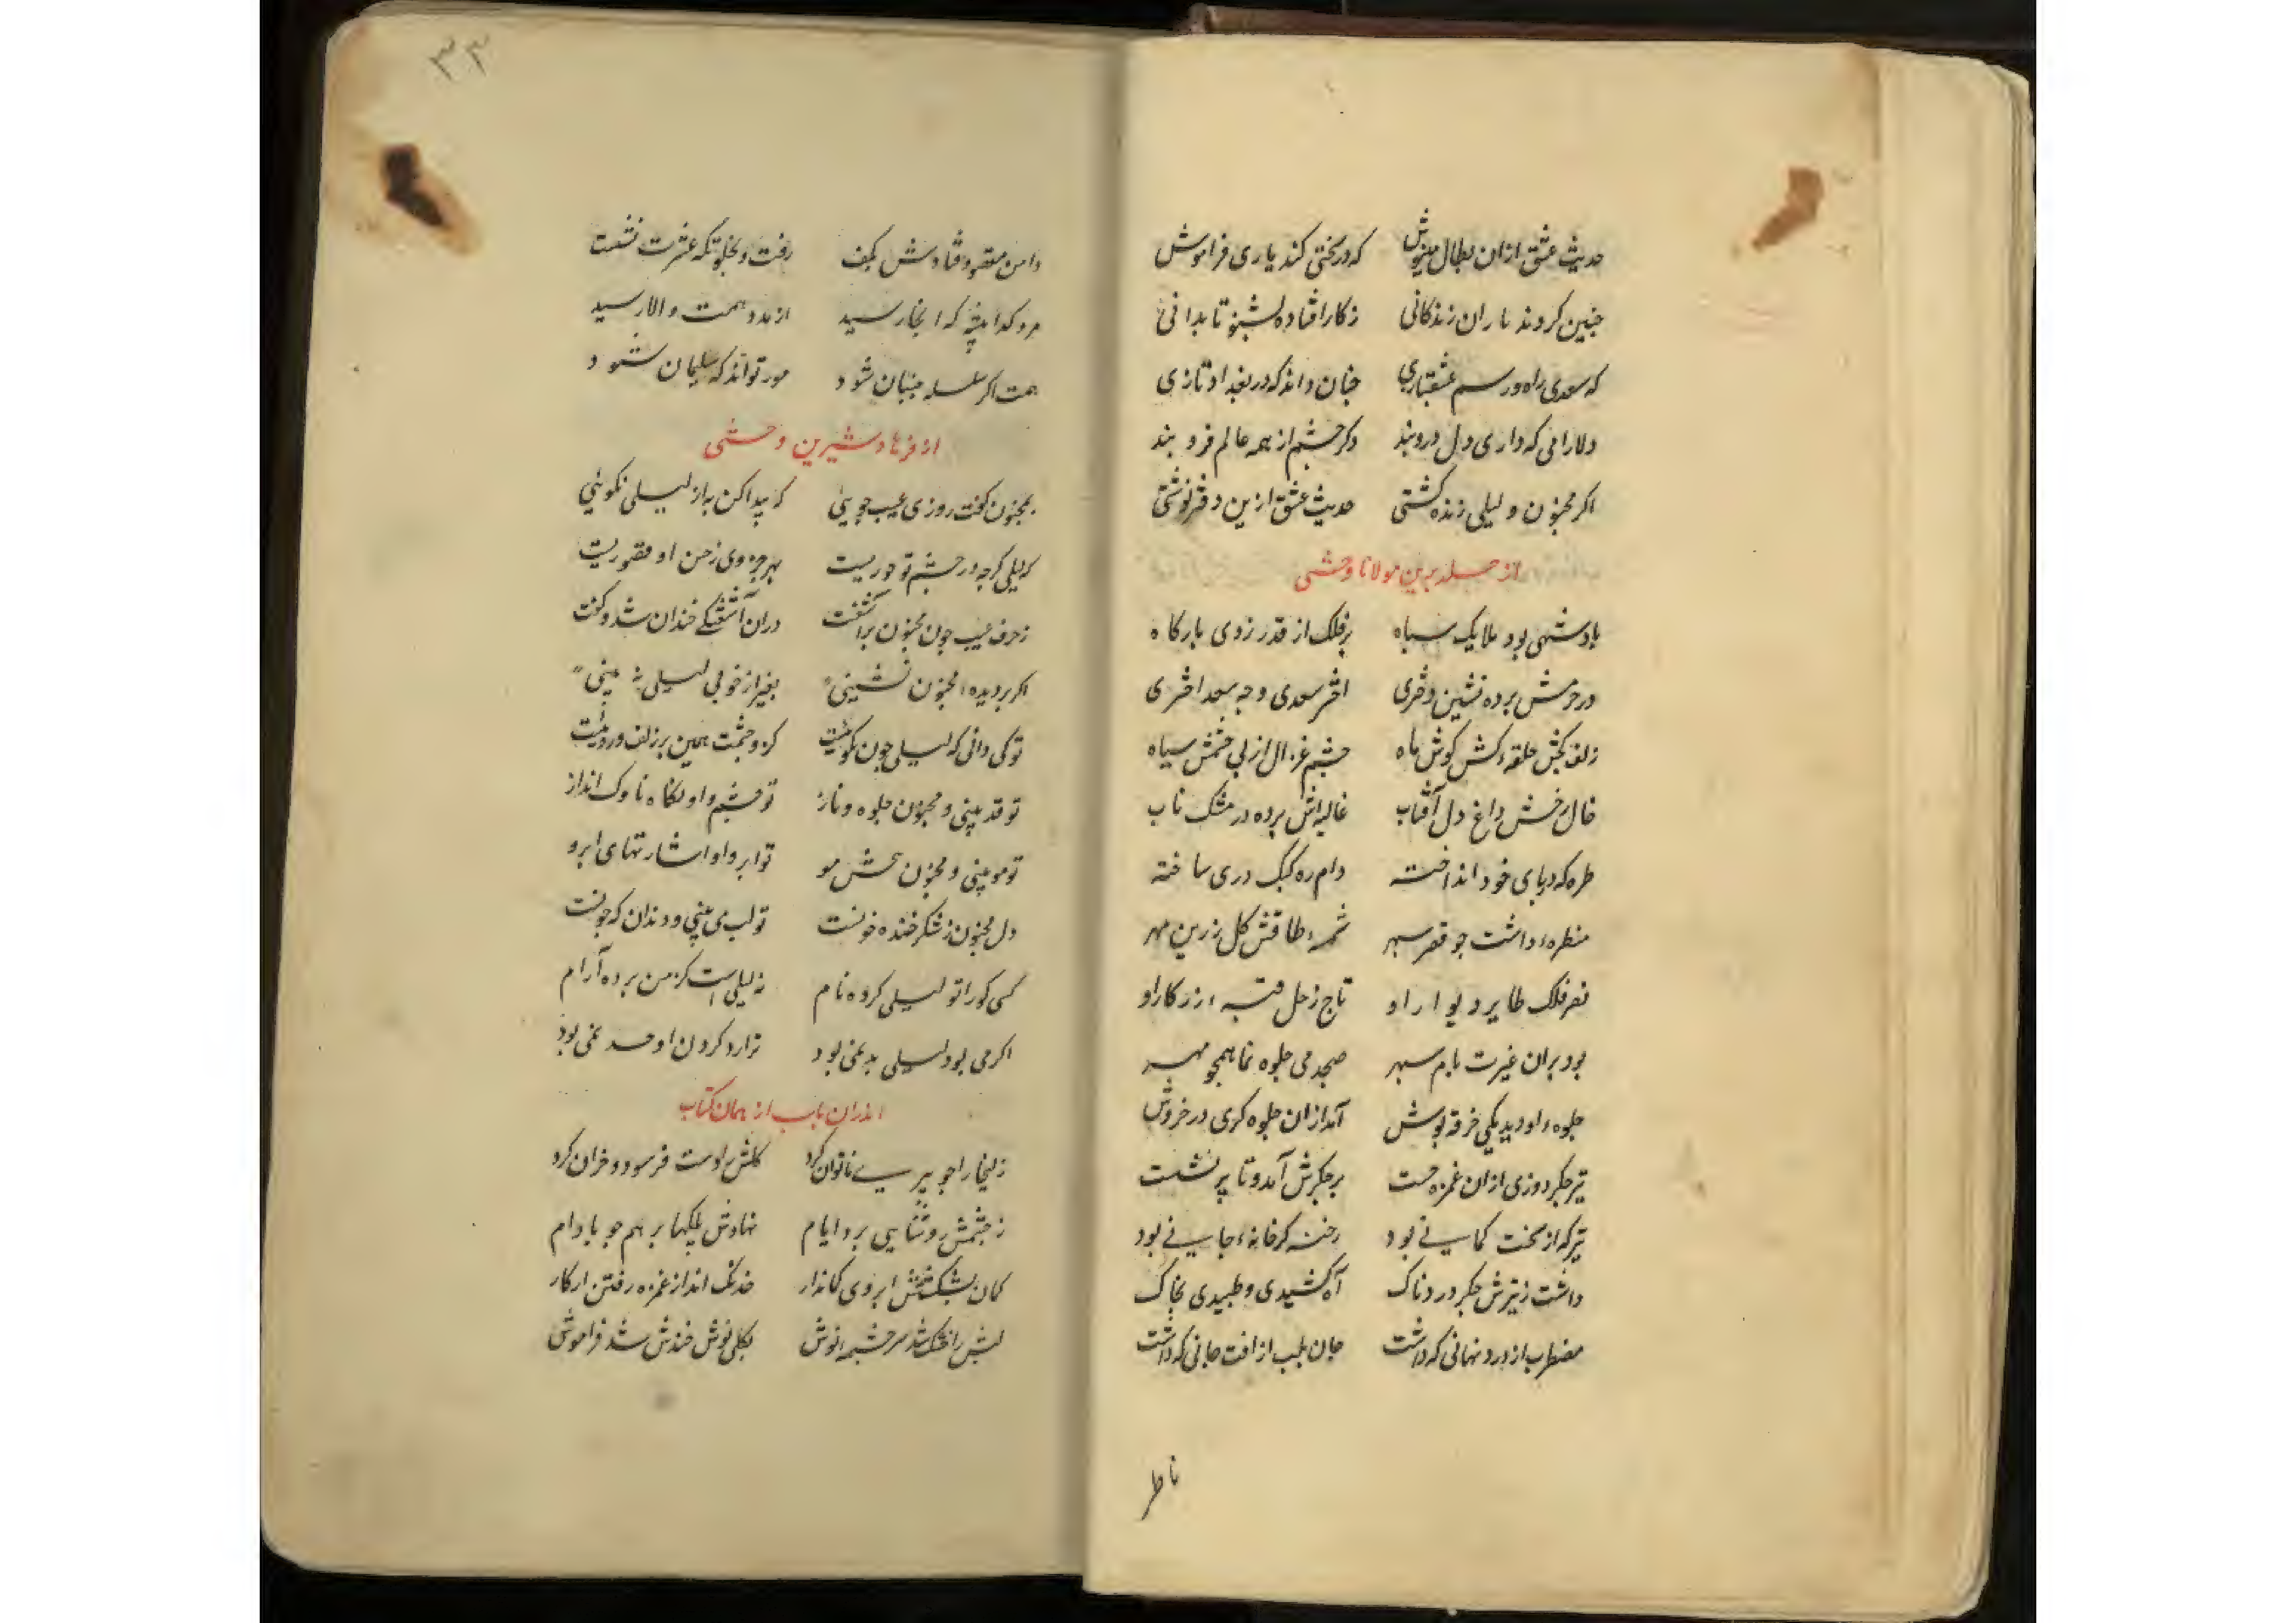 حدیث عشق ازان بطال منیوش که در سختی کند یاری فراموش
چنین کردند یاران زندگانی ز کار افتاده بشنو تا بدانی
که سعدی راه و رسم عشقبازی چنان داند که در بغداد تازی
دلارامی که داری دل درو بند دگر چشم از همه عالم فرو بند
اگر مجنون و لیلی زنده گشتی حدیث عشق ازین دفتر نوشتی
از خلد برین مولانا وحشی
پادشهی بود ملایک سپاه بر فلک از قدر زدی بارگاه
در حرمش پرده نشین دختری اختر سعدی و چه سعد اختری
زلف کجش حلقه کش گوش ماه چشم غزال از پی چشمش سیاه
خال رخش داغ دل آفتاب غالیه‌اش پرده در مشک ناب
طره که در پای خود انداخته دام ره کبک دری ساخته
منظرهٔ داشت چو قصر سپهر شمسهٔ طاقش گل زرین مهر
نسر فلک طایر دیوار او تاج زحل قبهٔ زرکار او
بود بران غیرت بام سپهر صبحدمی جلوه نما همچو مهر
جلوهٔ او دید یکی خرقه پوش آمد ازان جلوه گری در خروش
تیر جگر دوزی ازان غمزه جست بر جگرش آمد و تا پر نشست
تیر که از سخت کمانی بود رخنه گر خانهٔ جانی بود
داشت ز تیرش جگر دردناک آه کشیدی و طپیدی بخاک
مضطرب از درد نهانی که داشت جان بلب از آفت جانی که داشت
ناظر
۳۳
دامن مقصود فتادش بکف رفت و بخلوتگه عشرت نشست
مرد گدا پیشه که آنجا رسید از مدد همت والا رسید
همت اگر سلسله جنبان شود مور تواند که سلیمان شود
از فرهاد شیرین وحشی
بمجنون گفت روزی عیب جویی که پیدا کن به از لیلی نکویی
که لیلی گرچه در چشم تو حوریست بهر جزوی ز حسن او قصوریست
ز حرف عیب جو مجنون برآشفت دران آشفتگی خندان شد و گفت
اگر بر دیدهٔ مجنون نشینی بغیر از خوبی لیلی نه بینی
تو کی دانی که لیلی چون نکوئیست کزو چشمت همین بر زلف و روئیست
تو قد بینی و مجنون جلوه و ناز تو چشم و او نگاه ناوک انداز
تو مو بینی و مجنون پیچش مو تو ابرو او اشارتهای ابرو
دل مجنون ز شکر خنده خونست تو لب می بینی و دندان که چونست
کسی کو را تو لیلی کرده نام نه لیلی است کز من برده آرام
اگر می بود لیلی بد نمی بود ترا رد کردن او حد نمی بود
اندران باب از همان کتاب
زلیخا را چو پیری ناتوان کرد گلش را دست فرسود خزان کرد
ز چشمش روشنایی برد ایام نهادش پلکها بر هم چو بادام
کمان بشکستش ابروی کماندار خدنگ انداز غمزه رفتن از کار
لبش را خشک شد سرچشمه نوش بکلی نوش خندش شد فراموش